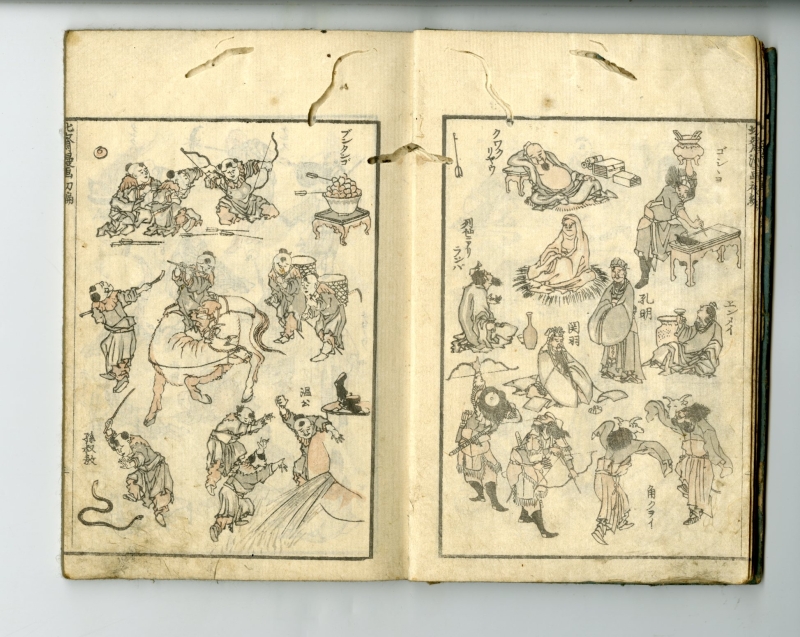 ゴシヨ
クワク
リヤウ
列仙ニアリ
ラシバ
孔明
エンメイ
関羽
角クヲイ
ブンタンゴ
温公
孫叔敖
北斎漫画初編